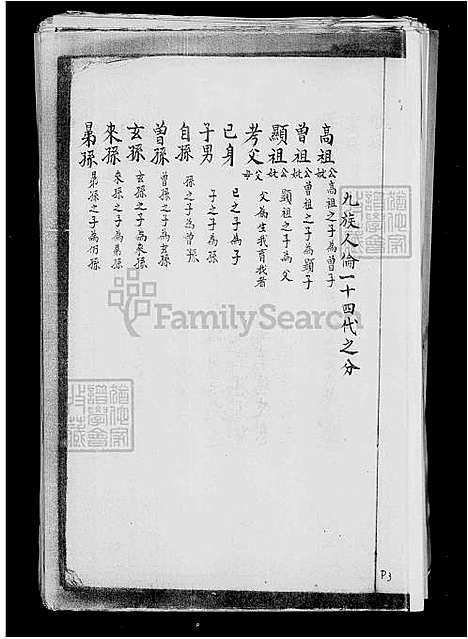 九族人倫一十四代之分
高祖公妣 高祖之子為曾子
曾祖公妣 曾祖之子為顯子
顯祖公妣 顯祖之子為父
考父父母 父為生我育我者
己身 己之子為子
子男 子之子為孫
自孫 孫之子為曾孫
曾孫 曾孫之子為玄孫
玄孫 玄孫之子為來孫
來孫 來孫之子為晜孫
晜孫 晜孫之子為仍孫
FamilySearch
P3